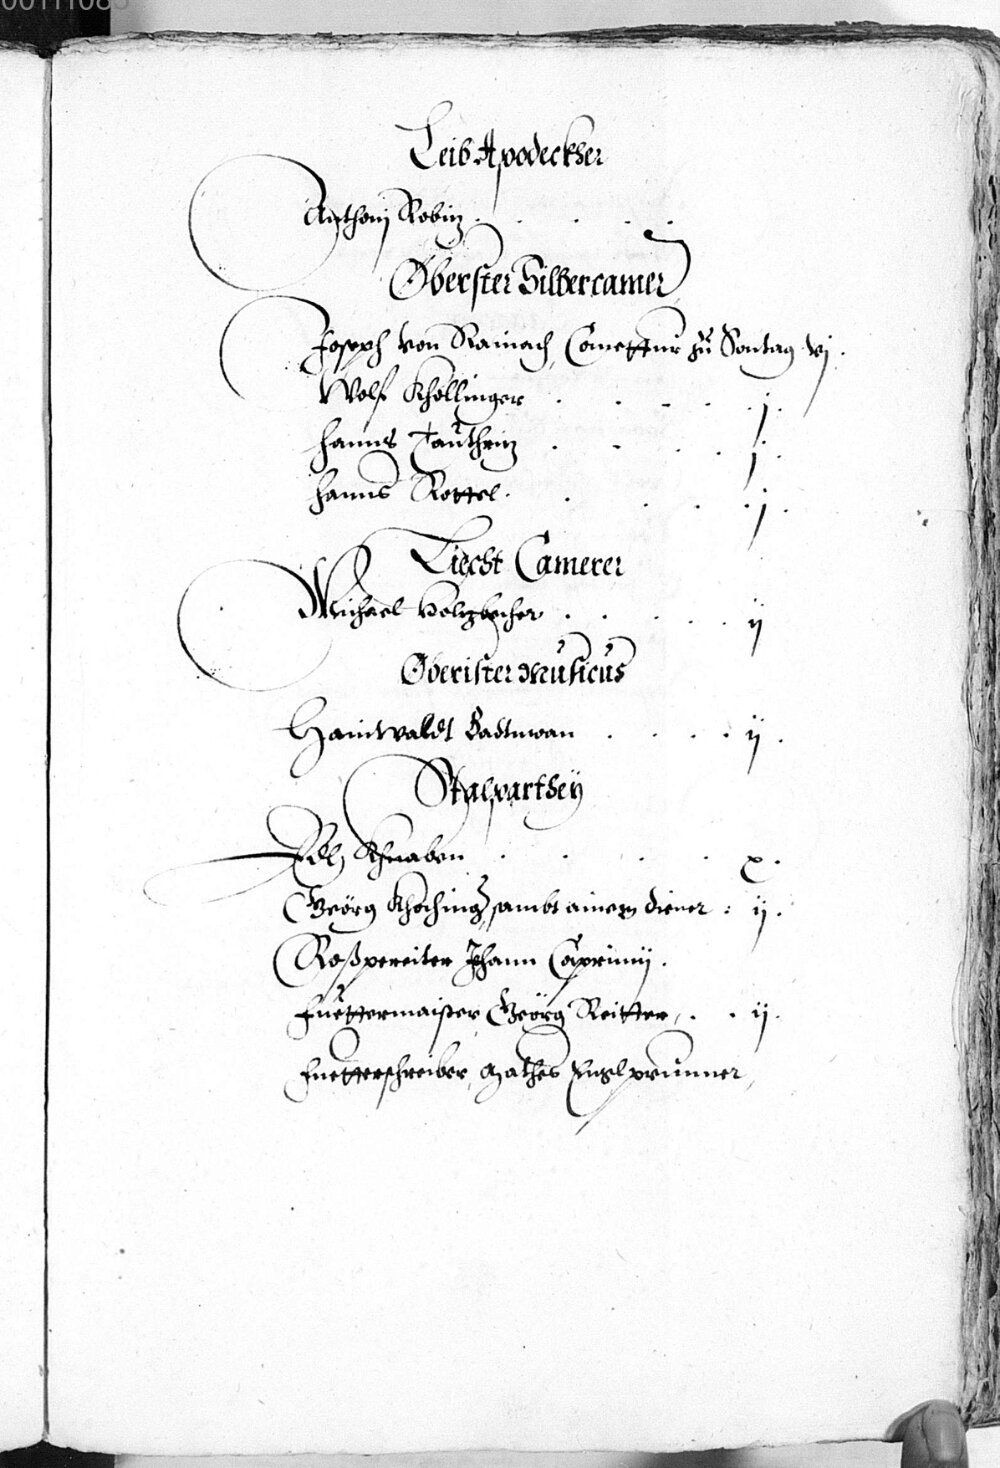 00111085
Leib Apodeckher
Anthonj Robin . . . . .
Öberster Silbercamer
Joseph von Rainach, Comettur zu Sontag vj .
Wolf Khöllinger . . . . . j .
Hanns . . . . j .
Hanns Rottel . . . . j .
Liecht Camerer
Michael Holzbecher . . . . . ij
Öberister Musicus
Hainwaldt Badtman . . . . ij .
Stalparthey
Edl Khnaben . . . . x .
Geörg Khoching, sambt ainem diener : ij .
Roßpereiter Johann Caprinij .
Fuettermaister Geörg Reitter, . . ij .
Fuetterschreiber, Mathes Englprunner,